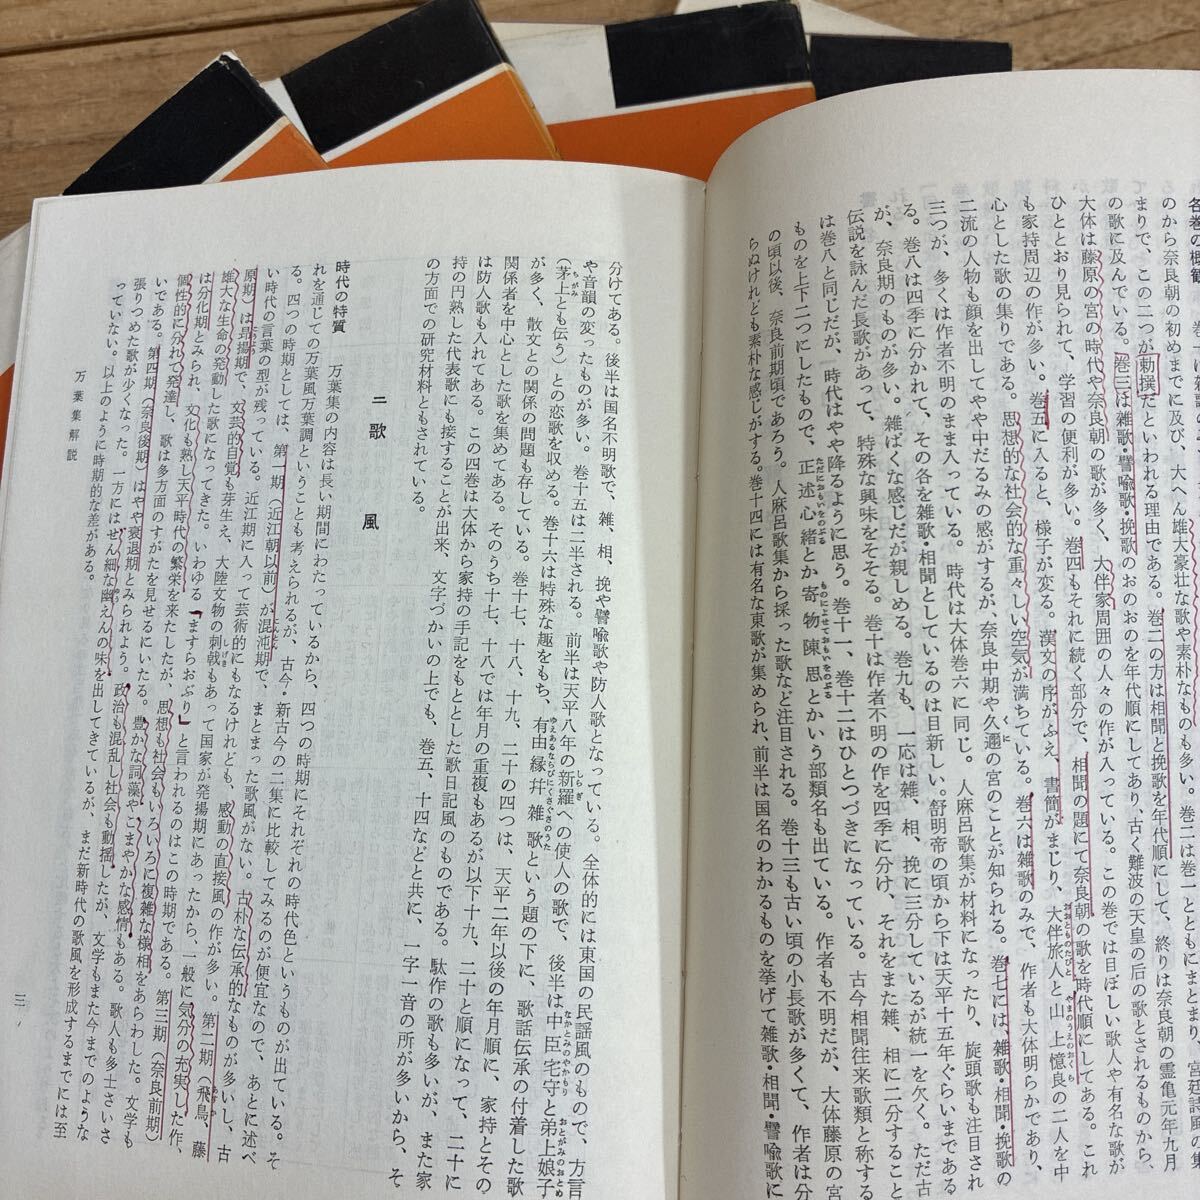 各巻の概観
のから奈良朝の初めまでに及び、大へん雄大豪壮な歌や素朴なものも
まりで、この二つが勅撰だといわれる理由である。巻二の方は相聞と挽歌を年代順にして、終りは奈良朝の霊亀元年九月
の歌に及んでいる。巻三は雑歌・譬喩歌・挽歌のおのおのを年代順にしてあり、古く難波の天皇の后の歌とされるものから、
大体は藤原の宮の時代や奈良朝の歌が多く、大伴家周囲の人々の作が入っている。この巻では目ぼしい歌人や有名な歌が
ひととおり見られて、学習の便利が多い。巻四もそれに続く部分で、相聞の題にて奈良朝の歌を時代順にしてある。これ
も家持周辺の作が多い。巻五に入ると、様子が変る。漢文の序がふえ、書簡がまじり、大伴旅人と山上憶良の二人を中
心とした歌の集りである。思想的な社会的な重々しい空気が満ちている。巻六は雑歌のみで、作者も大体明らかであり、
二流の人物も顔を出してやや中だるみの感がするが、奈良中期や久邇の宮のことが知られる。巻七には、雑歌・相聞・挽歌の
三つが、多くは作者不明のまま入っている。時代は大体巻六に同じ。人麻呂歌集が材料になったり、旋頭歌も注目され
る。巻八は四季に分かれて、その各を雑歌・相聞としているのは目新しい。舒明帝の頃から下は天平十五年ぐらいまである
が、奈良期のものが多い。雑ぱくな感じだが親しめる。巻九も、一応は雑、相、挽に三分しているが統一を欠く。ただ古
伝説を詠んだ長歌があって、特殊な興味をそそる。巻十は作者不明の作を四季に分け、それをまた雑、相に二分すること
は巻八と同じだが、時代はやや降るように思う。巻十一、巻十二はひとつづきになっている。古今相聞往来歌類と称する
ものを上下二つにしたもので、正述心緒とか寄物陳思とかいう部類名も出ている。作者も不明だが、大体藤原の宮
の頃以後、奈良前期頃であろう。人麻呂歌集から採った歌など注目される。巻十三も古い頃の小長歌が多くて、作者は分
らぬけれども素朴な感じがする。巻十四には有名な東歌が集められ、前半は国名のわかるものを挙げて雑歌・相聞・譬喩歌に
分けてある。後半は国名不明歌で、雑、相、挽や譬喩歌や防人歌となっている。全体的には東国の民謡風のもので、方言
や音韻の変ったものが多い。巻十五は二半される。前半は天平八年の新羅への使人の歌で、後半は中臣宅守と弟上娘子
(茅上とも伝う)との恋歌を収める。巻十六は特殊な趣をもち、有由縁幷雑歌という題の下に、歌話伝承の付着した歌
が多く、散文との関係の問題も存している。巻十七、十八、十九、二十の四つは、天平二年以後の年月順に、家持とその
関係者を中心とした歌を集めてある。そのうち十七、十八では年月の重複もあるが以下十九、二十と順になって、二十に
は防人歌も入れてある。この四巻は大体から家持の手記をもととした歌日記風のものである。駄作の歌も多いが、また家
持の円熟した代表歌にも接することが出来、文字づかいの上でも、巻五、十四などと共に、一字一音の所が多いから、そ
の方面での研究材料ともされている。
二 歌風
時代の特質 万葉集の内容は長い期間にわたっているから、四つの時期にそれぞれの時代色というものが出ている。そ
れを通じての万葉風万葉調ということも考えられるが、古今・新古今の二集に比較してみるのが便宜なので、あとに述べ
る。四つの時期としては、第一期(近江朝以前)が混沌期で、まとまった歌風がない。古朴な伝承的なものが多いし、古
い時代の言葉の型が残っている。近江期に入って芸術的にもなるけれども、感動の直接風の作が多い。第二期(飛鳥、藤
原期)は昂揚期で、文芸的自覚も芽生え、大陸文物の刺戟もあって国家が発揚期にあったから、一般に気分の充実した作、
雄大な生命の発動した歌になってきた。いわゆる「ますらおぶり」と言われるのはこの時期である。第三期(奈良前期)
は分化期とみられ、文化も熟し天平時代の繁栄を来たしたが、思想も社会もいろいろに複雑な様相をあらわした。文学も
個性的に分れて発達し、歌は多方面のすがたを見せるにいたる。豊かな詞藻やこまやかな感情もある。歌人も多士さいさ
いである。第四期(奈良後期)はやや衰退期とみられよう。政治も混乱し社会も動揺したが、文学もまた今までのような
張りつめた歌が少くなった。一方にはせん細な幽えんの味を出してきているが、まだ新時代の歌風を形成するまでには至
っていない。以上のように時期的な差がある。
万葉集解説
三